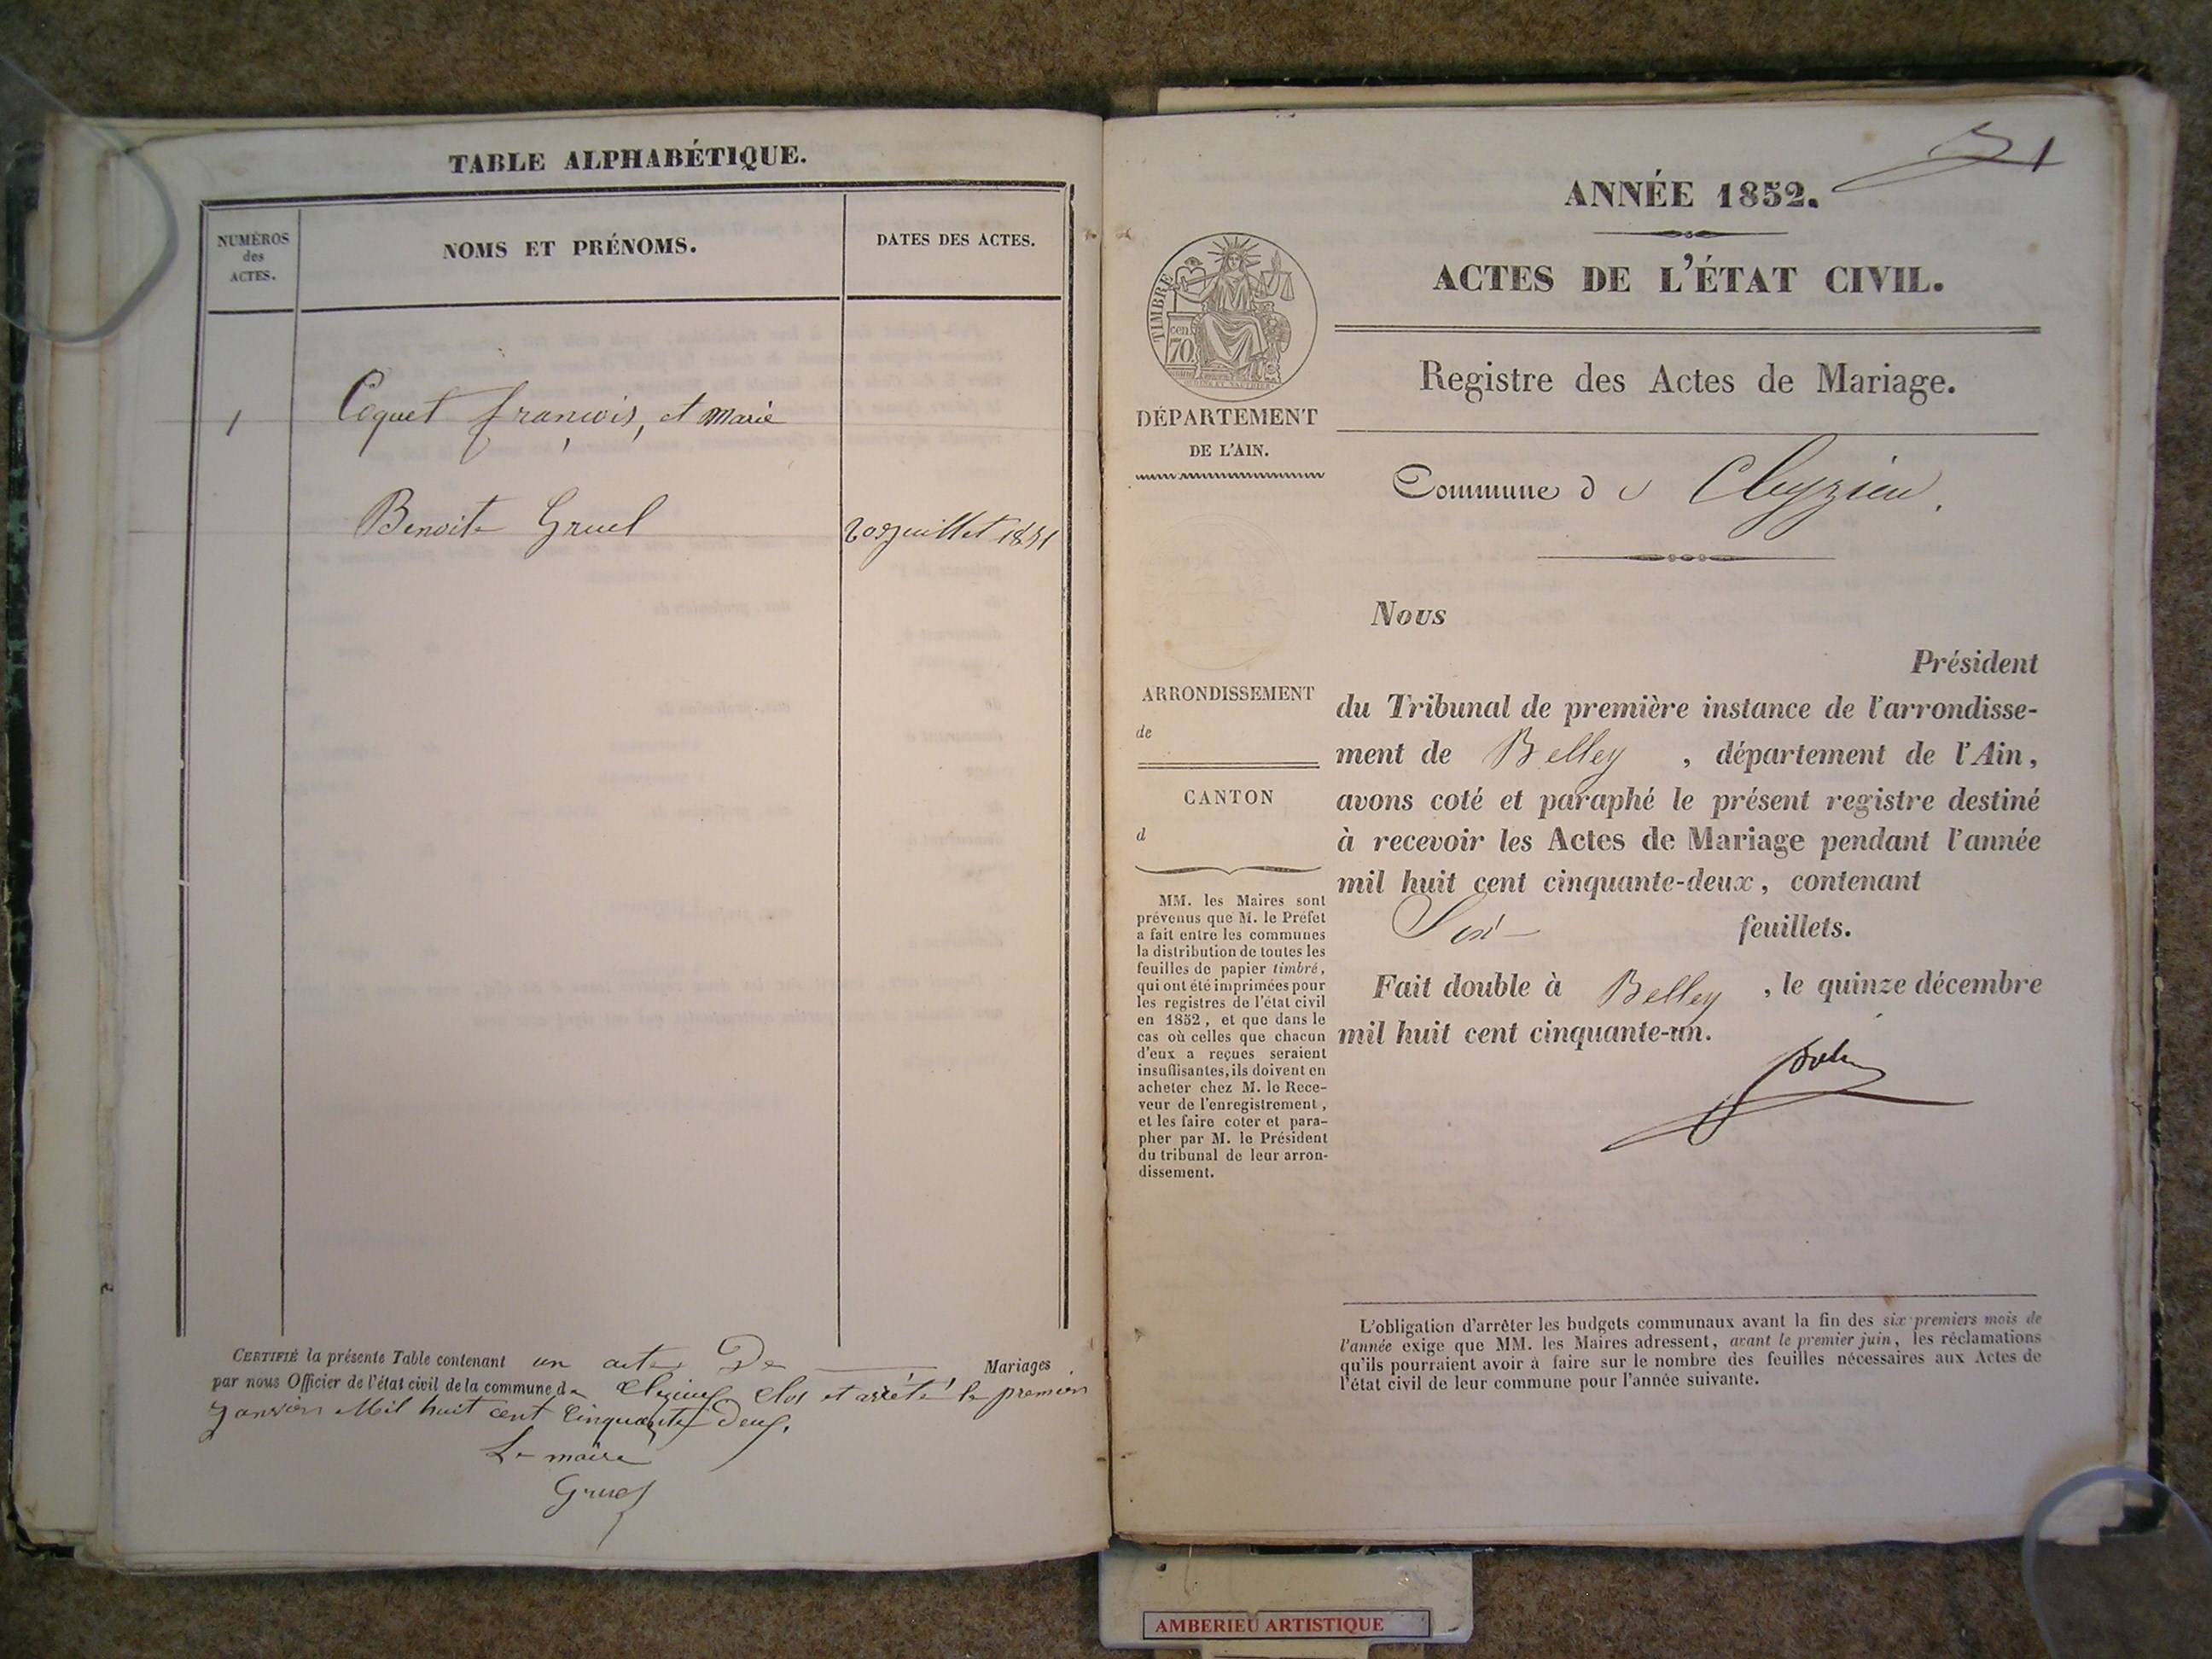 TABLE ALPHABÉTIQUE.
NUMÉROS
des
ACTES.
NOMS ET PRÉNOMS.
DATES DES ACTES.
1 Coquet françois, et Marie
Benoite Gruel 20 juillet 1851
CERTIFIÉ la présente Table contenant un acte De Mariages
par nous Officier de l'état civil de la commune de Cleyzieu Clos et arrêté le premier
janvier Mil huit cent Cinquante Deux.
Le maire
Gruel
1
ANNÉE 1852.
ACTES DE L'ÉTAT CIVIL.
TIMBRE
cen.
70
DÉPARTEMENT
DE L'AIN.
Registre des Actes de Mariage.
Commune de Cleyzieu.
Nous
Président
du Tribunal de première instance de l'arrondisse-
ment de Belley , département de l'Ain,
avons coté et paraphé le présent registre destiné
à recevoir les Actes de Mariage pendant l'année
mil huit cent cinquante-deux, contenant
Six feuillets.
Fait double à Belley , le quinze décembre
mil huit cent cinquante-un.
ARRONDISSEMENT
de
CANTON
d
MM. les Maires sont
prévenus que M. le Préfet
a fait entre les communes
la distribution de toutes les
feuilles de papier timbré,
qui ont été imprimées pour
les registres de l'état civil
en 1852, et que dans le
cas où celles que chacun
d'eux a reçues seraient
insuffisantes, ils doivent en
acheter chez M. le Rece-
veur de l'enregistrement,
et les faire coter et para-
pher par M. le Président
du tribunal de leur arron-
dissement.
L'obligation d'arrêter les budgets communaux avant la fin des six premiers mois de
l'année exige que MM. les Maires adressent, avant le premier juin, les réclamations
qu'ils pourraient avoir à faire sur le nombre des feuilles nécessaires aux Actes de
l'état civil de leur commune pour l'année suivante.
AMBERIEU ARTISTIQUE